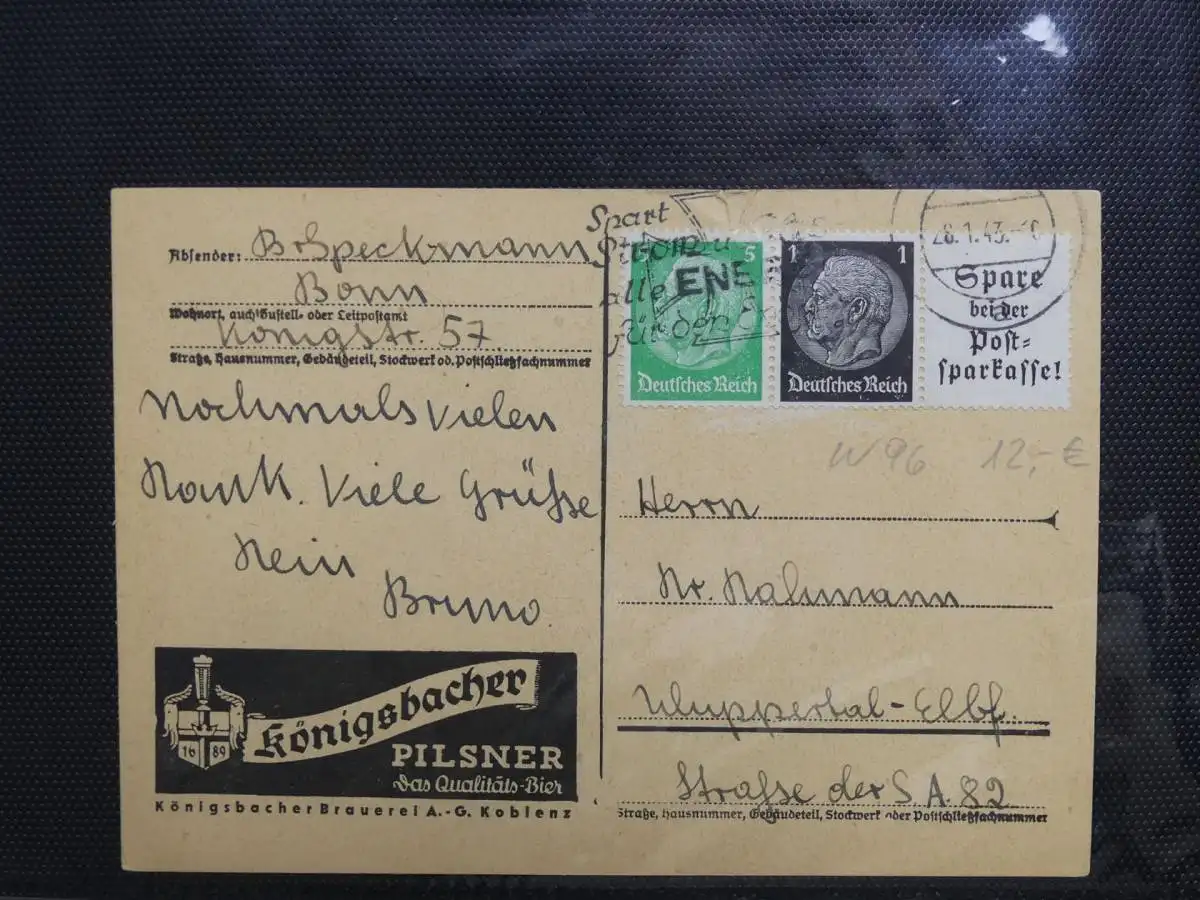 Absender: B. Speckmann
Bonn
Wohnort, auch Zustell- oder Leitpostamt
Königstr. 57
Straße, Hausnummer, Gebäudeteil, Stockwerk od. Postschließfachnummer
Nochmals vielen
Dank. Viele Grüße
Dein
Bruno
1689
Königsbacher
PILSNER
Das Qualitäts-Bier
Königsbacher Brauerei A.-G. Koblenz
Spart
Strom u
alle
für den
ENE
28.1.43
a
5
Deutsches Reich
1 1
Deutsches Reich
Spare
bei der
Post=
sparkasse!
W 96 12,- €
Herrn
Dr. Dahmann
Wuppertal-Elbf.
Straße der S.A. 82
Straße, Hausnummer, Gebäudeteil, Stockwerk oder Postschließfachnummer